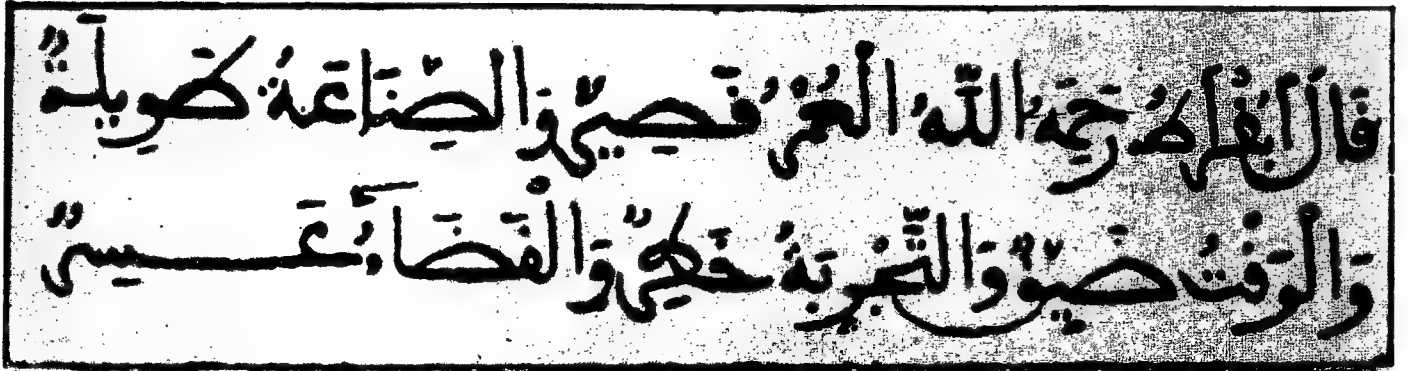 قَالَ ابُقْرَاطُ رَحِمَهُ اللَّهُ الْعُمْرُ قَصِيرٌ وَالصِّنَاعَةُ طَوِيلَةٌ
وَالْوَقْتُ ضَيِّقٌ وَالتَّجْرِبَةُ خَطِيرٌ وَالْقَضَاءُ عَسِيرٌ